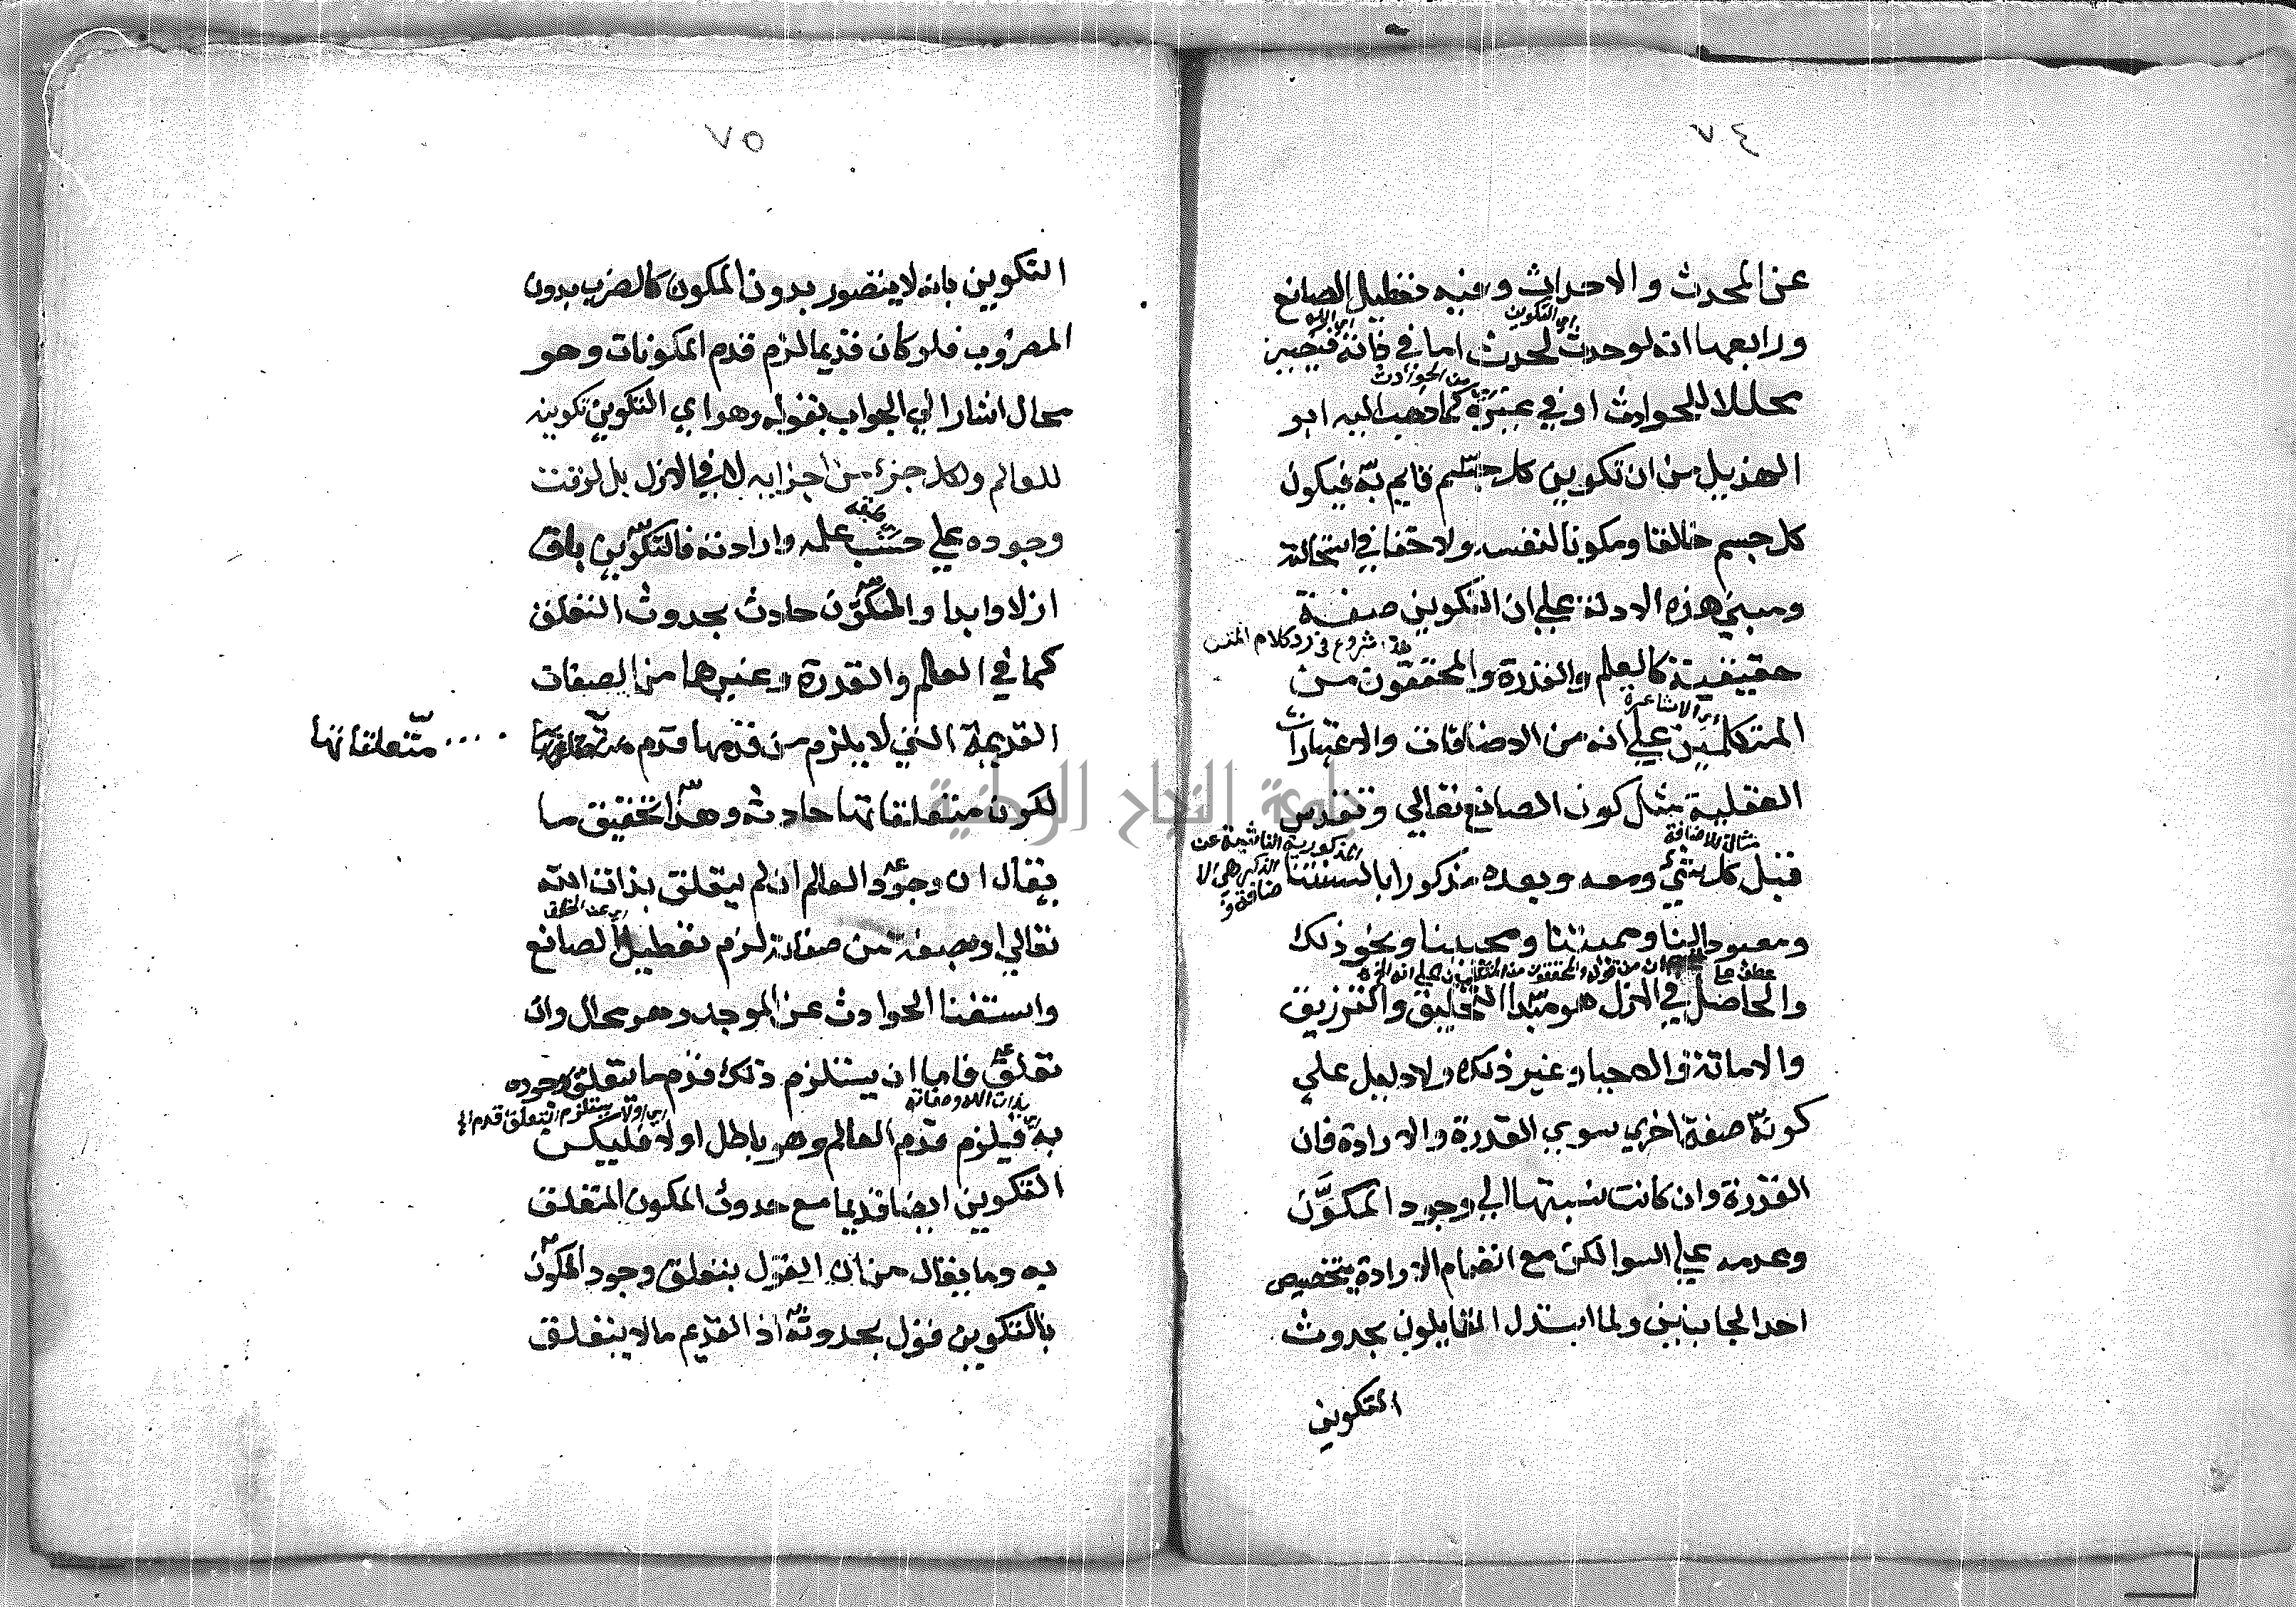 ٧٤
عن المحدث والاحداث وفيه تعطيل الصانع
اي التكوين
اي الله
ورابعها انه لو حدث لحدث اما في ذاته فيصير
من الحوادث
محلا للحوادث او في غيره كما ذهب اليه ابو
الهذيل من ان تكوين كل جسم قايم به فيكون
كل جسم خالقا ومكونا لنفسه ولا خفا في استحالته
ومبنى هذه الادلة علي ان التكوين صفة
هذا شروع في رد كلام المتن
حقيقية كالعلم والقدرة والمحققون من
اي الاشاعرة
المتكلمين علي انه من الاضافات والاعتبارات
العقلية مثل كون الصانع تعالي وتقدس
مثالة للاضافة
المذكورية الناشية عن
الذكر هي الا
ضافة
قبل كل شيء ومعه وبعده مذكورا بالسنتنا
ومعبودا لنا ومميتنا ومحيينا ونحو ذلك
عطف علي ان من قوله والمحققون من المتكلمين علي انه الخ
والحاصل في الازل هو مبدا التخليق والترزيق
والاماتة والاحيا وغير ذلك ولا دليل علي
كونه صفة اخري سوي القدرة والارادة فان
القدرة وان كانت نسبتها الي وجود المكوَّن
وعدمه علي السوا لكن مع انضمام الارادة يتخصص
احد الجانبين ولما استدل القايلون بحدوث
التكوين
٧٥
التكوين بانه لا يتصور بدون المكون كالضرب بدون
المضروب فلو كان قديما لزم قدم المكونات وهو
محال اشار الي الجواب بقوله وهو اي التكوين تكوينه
للعالم ولكل جزء من اجزايه لا في الازل بل لوقت
وجوده علي حسب علمه وارادته فالتكوين باق
ازلا وابدا والمكوَّن حادث بحدوث التعلق
كما في العلم والقدرة وغيرها من الصفات
القديمة التي لا يلزم من قدمها قدم متعلقاتها
متعلقاتها
لكون متعلقاتها حادثة وهذا تحقيق ما
يقال ان وجود العالم ان لم يتعلق بذات الله
اي عن الخلق
تعالي او صفة من صفاته لزم تعطيل الصانع
واستغنا الحوادث عن الموجد وهو محال وان
تعلق فاما ان يستلزم ذلك قدم ما يتعلق وجوده
بذات الله وصفاته
اي اولا يستلزم التعلق قدم الخ
به فيلزم قدم العالم وهو باطل اولا فليكن
التكوين ايضا قديما مع حدوث المكون المتعلق
به وما يقال من ان القول بتعلق وجود المكون
بالتكوين قول بحدوثه اذ القديم ما لا يتعلق
جامعة النجاح الوطنية